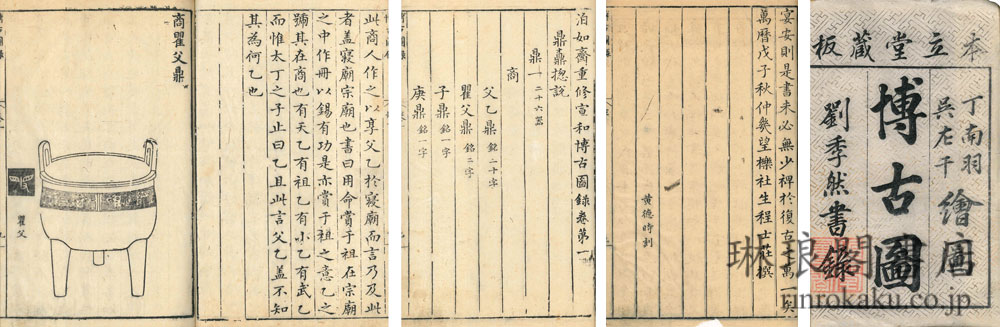 本立堂藏板
丁南羽
吳左千
繪圖
博古圖
劉季然書錄
宴安則是書未必無少裨於復古之萬一矣
萬曆戊子秋仲幾望櫟社生程士莊撰
黃德時刻
泊如齋重修宣和博古圖錄卷第一
鼎鼐摠說
鼎一 二十六器
商
父乙鼎 銘二十字
瞿父鼎 銘二字
子鼎 銘一字
庚鼎 銘一字
此商人作之以享父乙於寢廟而言乃及此
者蓋寢廟宗廟也書曰用命賞于祖在宗廟
之中作冊以錫有功是亦賞于祖之意乙之
號其在商也有天乙有祖乙有小乙有武乙
而惟太丁之子止曰乙且此言父乙蓋不知
其為何乙也
商瞿父鼎
瞿父
琳琅閣
rinrokaku.co.jp